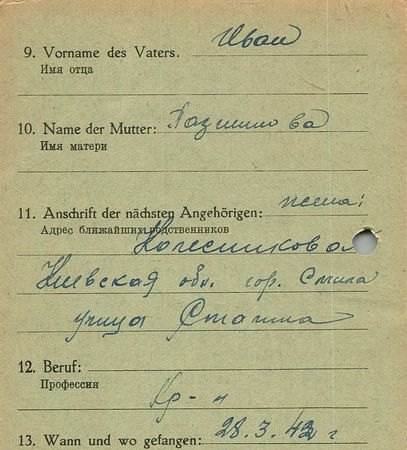 9. Vorname des Vaters. Иван
Имя отца
10. Name der Mutter:
Имя матери
11. Anschrift der nächsten Angehörigen: жена:
Адрес ближайших родственников
Колесникова
Киевская обл. гор. Смила
улица Сталина
12. Beruf:
Профессия
Кр-н
13. Wann und wo gefangen: 28.3.42 г